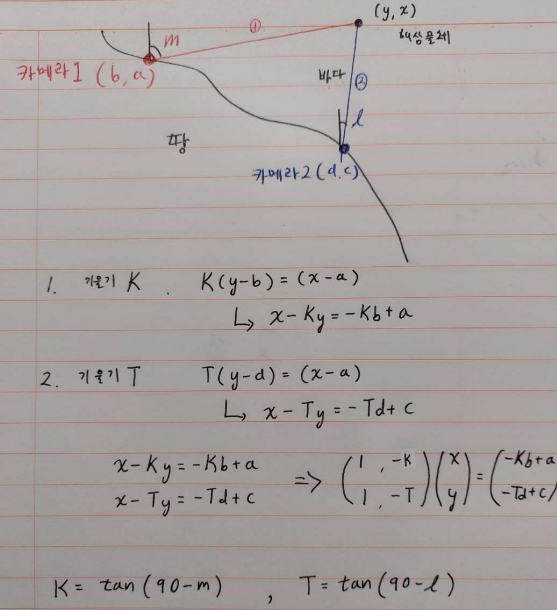 (y, x)
해상물체
m
①
카메라1 (b, a)
바다
②
땅
l
카메라2 (d, c)
1. 기울기 K . K(y-b) = (x-a)
↳ x-Ky = -Kb+a
2. 기울기 T T(y-d) = (x-a)
↳ x-Ty = -Td+c
x-Ky = -Kb+a
x-Ty = -Td+c
=> (1, -K
1, -T) (x
y) = (-Kb+a
-Td+c)
K = tan(90-m) , T = tan(90-l)